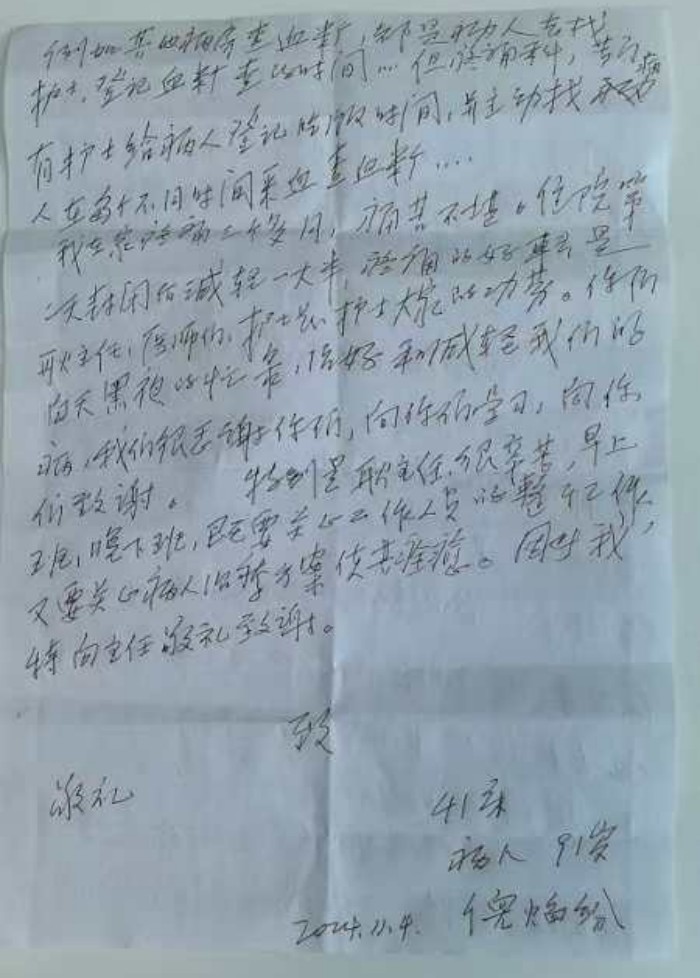 例如其它病房查血糖，都是病人去找
护士，登记血糖查的时间…但疼痛科，
有护士给病人登记吃饭时间，并主动找病
人在多个不同时间采血查血糖….
我在家疼痛三个多月，痛苦不堪。住院第
一次封闭后减轻一大半，疼痛的好转是
耿主任，医师们，护士长护士大家的功劳。你们
白天黑夜的忙着，治好和减轻我们的
病，我们很感谢你们，向你们学习，向你
们致谢。 特别是耿主任，很辛苦，早上
班，晚下班，既要关心工作人员的整个工作
又要关心病人治疗方案使其痊愈。因此我，
特向主任敬礼致谢。
致
敬礼
41床
病人 91岁
2024.11.4. 倪焕